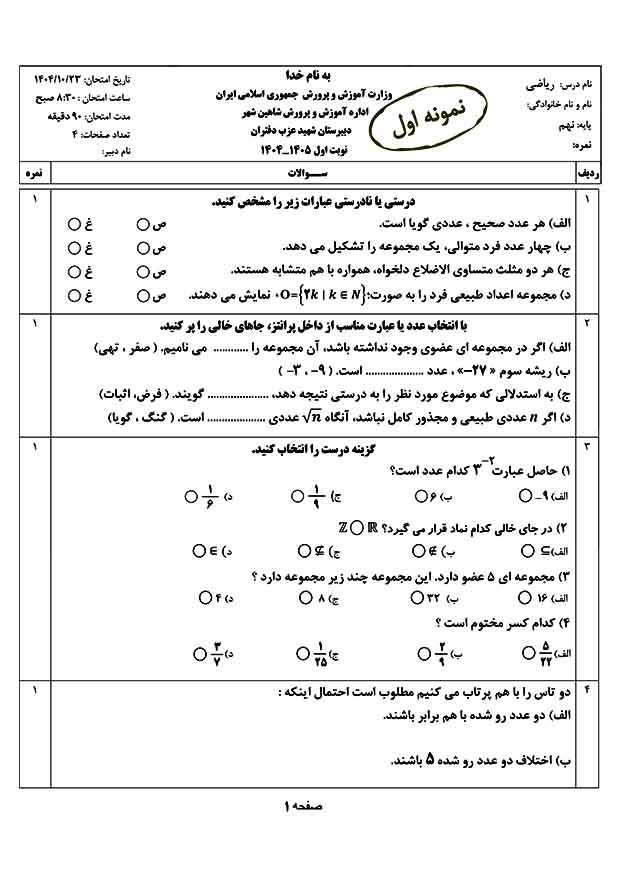 نام درس: ریاضی
نام و نام خانوادگی:
پایه: نهم
نمره:
نمونه اول
به نام خدا
وزارت آموزش و پرورش جمهوری اسلامی ایران
اداره آموزش و پرورش شاهین شهر
دبیرستان شهید عزب دفتران
نوبت اول ۱۴۰۵_۱۴۰۴
تاریخ امتحان: ۱۴۰۴/۱۰/۲۳
ساعت امتحان : ۸:۳۰ صبح
مدت امتحان: ۹۰ دقیقه
تعداد صفحات: ۴
نام دبیر:
ردیف سـوالات نمره
۱ درستی یا نادرستی عبارات زیر را مشخص کنید. ۱
الف) هر عدد صحیح ، عددی گویا است. ص غ
ب) چهار عدد فرد متوالی، یک مجموعه را تشکیل می دهد. ص غ
ج) هر دو مثلث متساوی الاضلاع دلخواه، همواره با هم متشابه هستند. ص غ
د) مجموعه اعداد طبیعی فرد را به صورت؛ O={۲k | k ∈ N}، نمایش می دهند. ص غ
۲ با انتخاب عدد یا عبارت مناسب از داخل پرانتز، جاهای خالی را پر کنید. ۱
الف) اگر در مجموعه ای عضوی وجود نداشته باشد، آن مجموعه را ............ می نامیم. ( صفر ، تهی)
ب) ریشه سوم « ۲۷−»، عدد .................... است. ( ۹- ، ۳- )
ج) به استدلالی که موضوع مورد نظر را به درستی نتیجه دهد، .................... گویند. ( فرض، اثبات)
د) اگر n عددی طبیعی و مجذور کامل نباشد، آنگاه √n عددی .................... است. ( گنگ ، گویا)
۳ گزینه درست را انتخاب کنید. ۱
۱) حاصل عبارت ۳⁻² کدام عدد است؟
الف) ۹- ب) ۶ ج) ۱/۹ د) ۱/۶
۲) در جای خالی کدام نماد قرار می گیرد؟ ℤ◯ℝ
الف) ⊆ ب) ∉ ج) ⊈ د) ∈
۳) مجموعه ای ۵ عضو دارد. این مجموعه چند زیر مجموعه دارد ؟
الف) ۱۶ ب) ۳۲ ج) ۸ د) ۴
۴) کدام کسر مختوم است ؟
الف) ۵/۲۲ ب) ۲/۹ ج) ۱/۲۵ د) ۳/۷
۴ دو تاس را با هم پرتاب می کنیم مطلوب است احتمال اینکه : ۱
الف) دو عدد رو شده با هم برابر باشند.
ب) اختلاف دو عدد رو شده ۵ باشند.
صفحه ۱